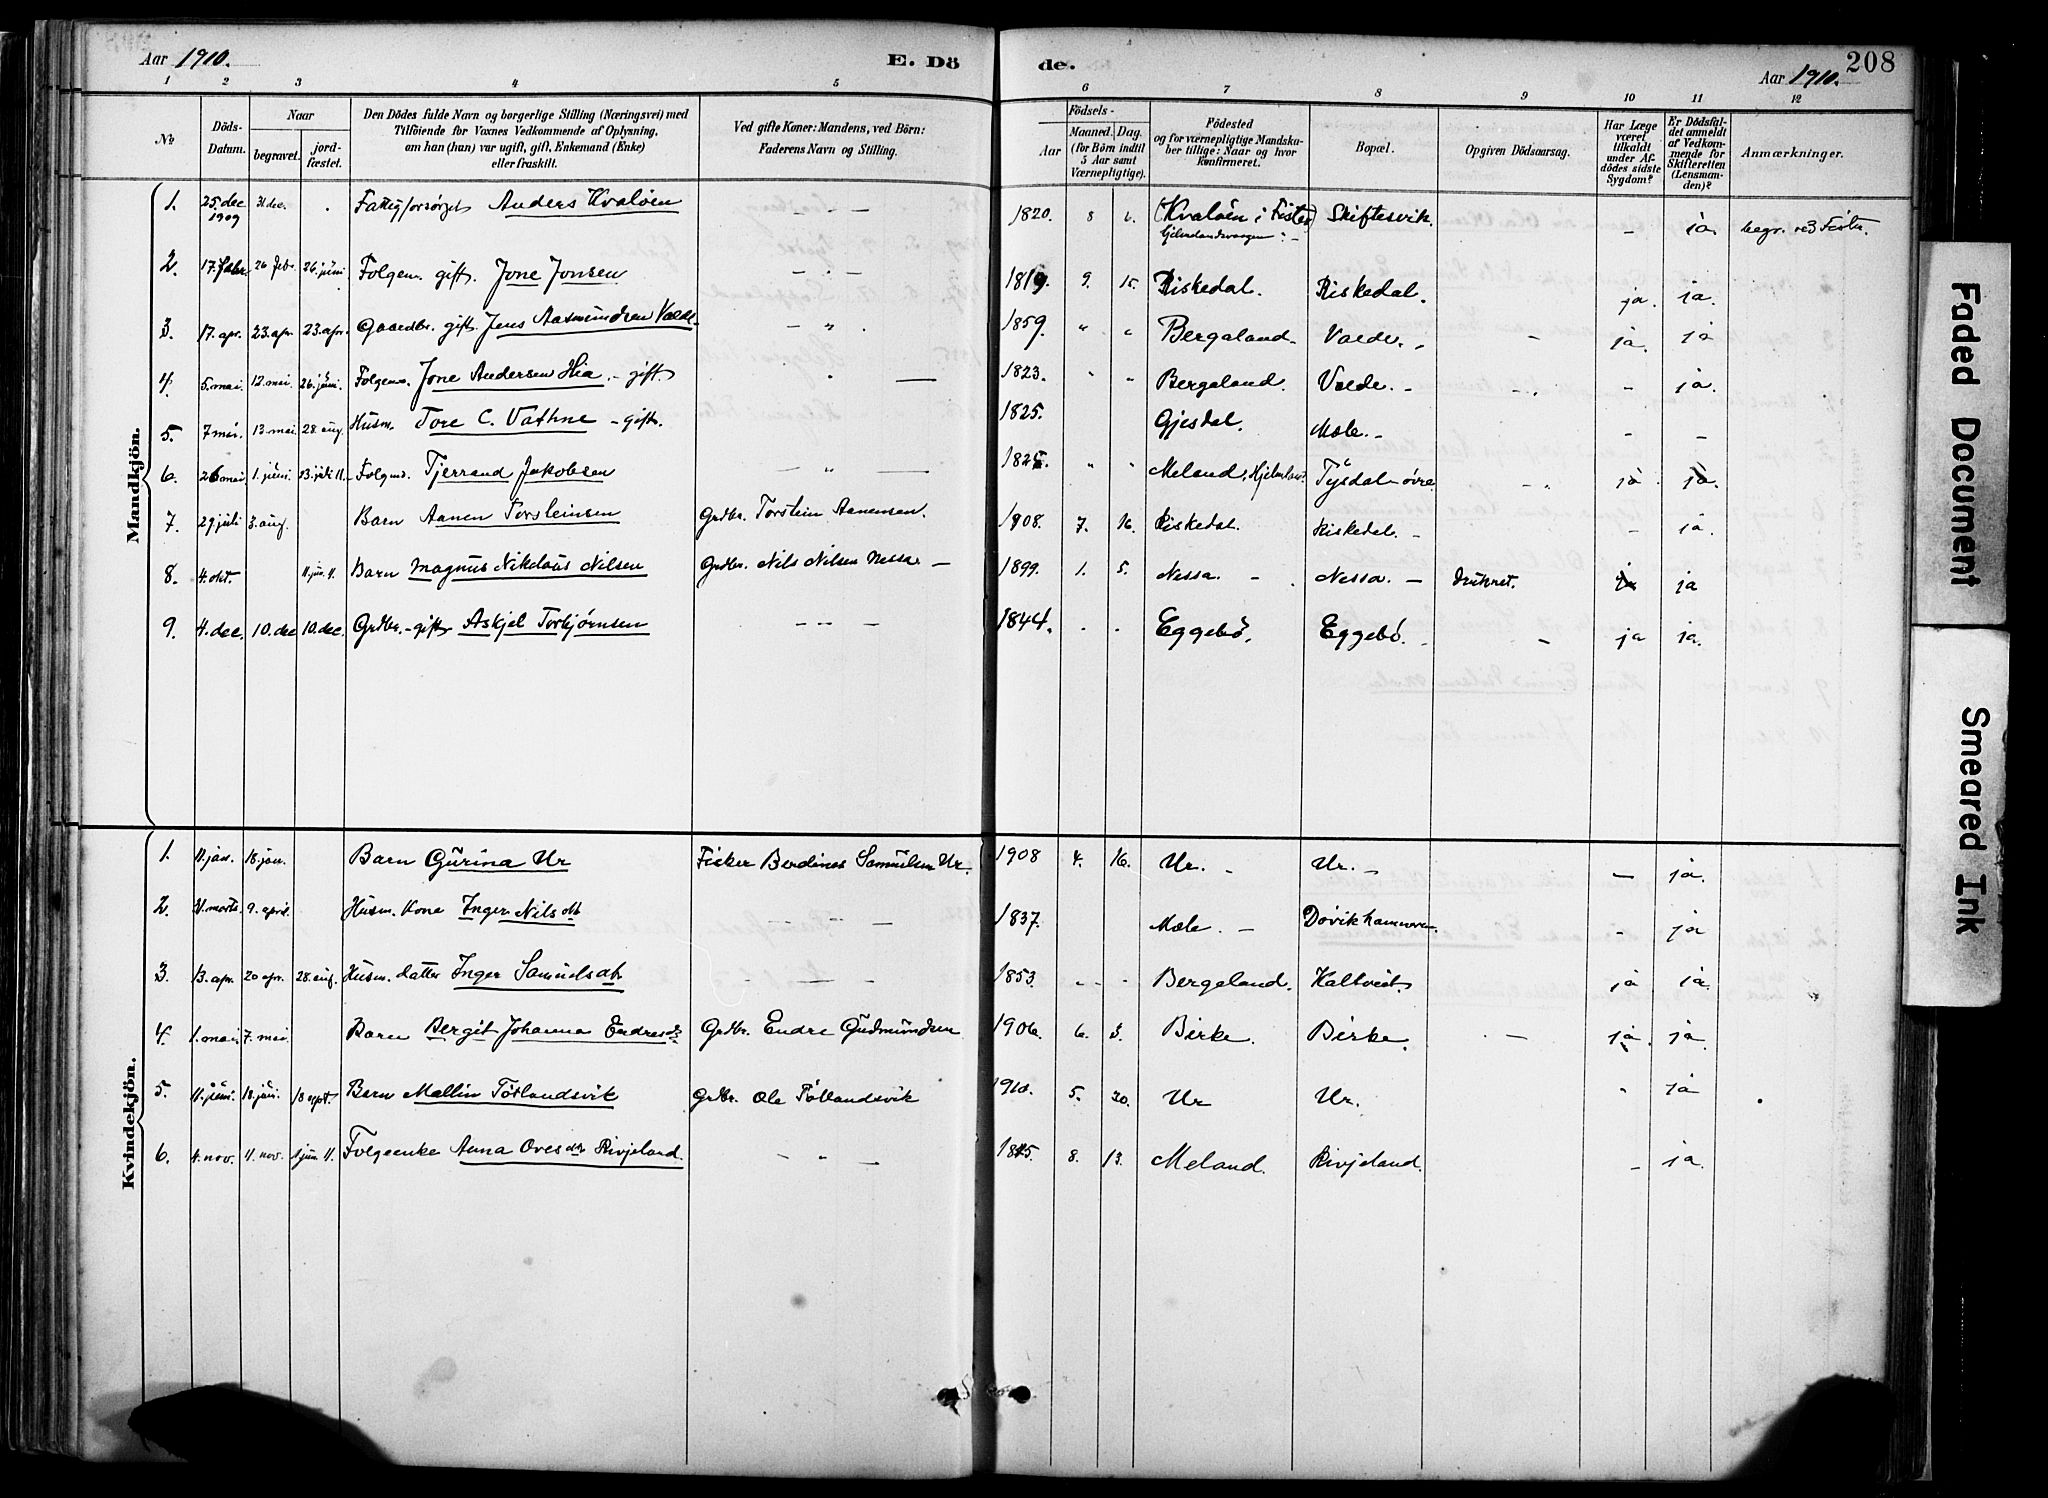 Aar 1910.
E. Dö de.
208
Aar 1910.
1 2 3 4 5 6 7 8 9 10 11 12
No.
Döds-Datum.
Naar
begravet.
jord-fæstet.
Den Dödes fulde Navn og borgerlige Stilling (Næringsvei) med
Tilföiende for Voxnes Vedkommende af Oplysning,
om han (hun) var ugift, gift, Enkemand (Enke)
eller fraskilt.
Ved gifte Koner: Mandens, ved Börn:
Faderens Navn og Stilling.
Födsels-
Aar
Maaned. Dag.
(for Börn indtil
5 Aar samt
Værnepligtige).
Födested
og for værnepligtige Mandska-
ber tillige: Naar og hvor
konfirmeret.
Bopæl.
Opgiven Dödsaarsag.
Har Læge
været
tilkaldt
under Af-
dödes sidste
Sygdom?
Er Dödsfal-
det anmeldt
af Vedkom-
mende for
Skifteretten
(Lensman-
den)?
Anmærkninger.
Mandkjön.
1. 25. dec 1909 31 dec. Fattigforsörget Anders Kvaløen 1820. 8 6. (Kvaløen i Fister) Skiftesvik. - ja. begr. ved Fister.
2. 17. febr. 26 febr. 26. juni Folgem. gift. Jone Jonsen 1819. 9. 15. Riskedal. Riskedal. ja. ja.
3. 17. apr. 23. apr. 23. apr. Gaardbr. gift Jens Aasmundsen Valde 1859. " " Bergaland. Valde. - ja. ja
4. 5. mai. 12. mai. 26. juni. Folgem. Jone Andersen Hia. - gift 1823. " " Bergaland. Valde. - ja.
5. 7 mai. 13. mai. 28. aug. Husm. Tore C. Vathne - gift. 1825. Gjesdal. Mæle. - -
6. 26 mai 1. juni. 23. juli 11. Folgmd. Tjerrand Jakobsen " " Meland, Hjelmeland. Tysdal øvre. ja. ja.
7. 29 juli 3. aug. Barn Aanen Torsteinsen Grdbr. Torstein Aanensen. 1908. 7. 16. Riskedal. Riskedal. - ja.
8. 4. okt. 11. jun. 11. Barn Magnus Nikolaus Nilsen Grdbr. Nils Nilsen Nessa. - 1899. 1. 5. Nessa. - Nessa. - druknet. ja
9. 4. dec. 10. dec 10. dec. Grdbr. - gift Askjel Torbjørnsen 1844. Eggebø. Eggebø. - ja ja.
Kvindekjön.
1. 11. jan. 18. jan. Barn Gurina Ur Fisker Berdines Samuelsen Ur. 1908 4. 16. Ur. - Ur. - - ja.
2. 31. marts. 9. april. Husm. Kone Inger Nils dtr 1837. Mæle. - Døvikhammeren. - ja
3. 13. apr. 20 apr. 28. aug. Husm. datter Inger Samuels dtr 1853. Bergeland. Kaltveit. ja ja.
4. 1. mai. 7. mai. Barn Bergit Johanna Endresdr Grdbr. Endre Gudmundsen 1906. 6. 3. Birke. Birke. - ja ja.
5. 11. juni. 18. juni. 18 sept. Barn Mallin Tøtlandsvik Grdbr. Ole Tøtlandsvik 1910. 5. 20. Ur Ur. " ja
6. 4. nov. 11. nov. 1 jun. 11. Folgeenke Anna Oves dtr Rivjeland. 8. 13. Meland. Rivjeland. - ja.
Faded Document
Smeared Ink